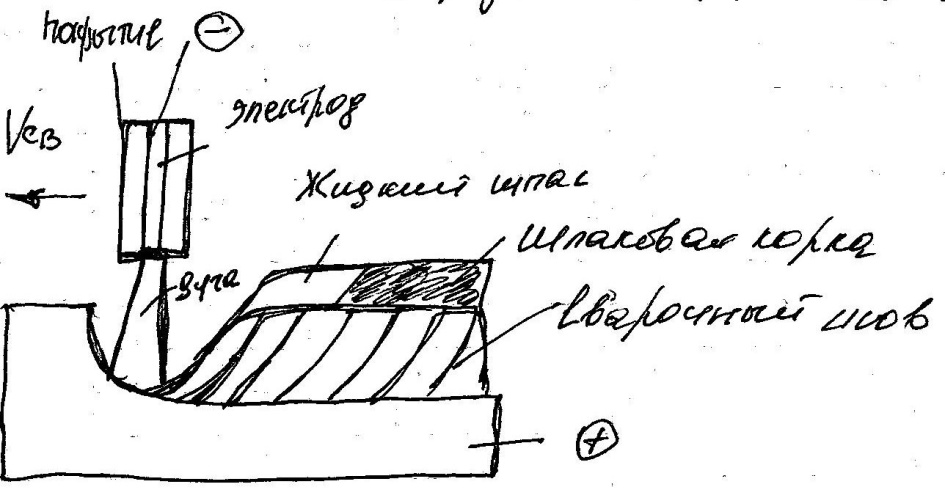 покрытие
⊖
электрод
Vсв
Жидкий шлак
Шлаковая корка
дуга
Сварочный шов
⊕